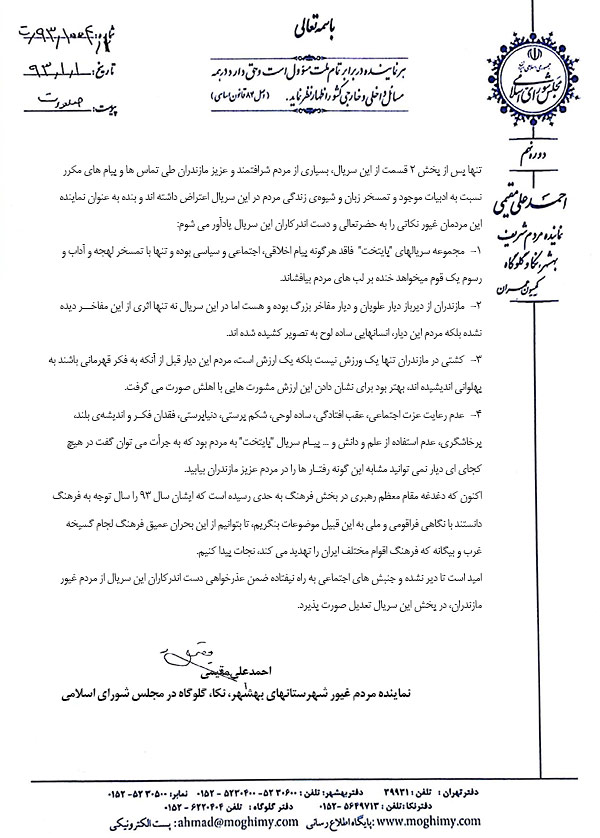 باسمه تعالی
هر نماینده در برابر تمام ملت مسؤول است و حق دارد در همه
مسائل داخلی و خارجی کشور اظهار نظر نماید. (اصل ۸۴ قانون اساسی)
تاریخ: ۹۳/۱/۱
پیوست:
جمهوری اسلامی ایران
مجلس شورای اسلامی
دوره نهم
احمد علی مقیمی
نماینده مردم شریف
بهشهر، نکا و گلوگاه
کمیسیون عمران
تنها پس از پخش ۲ قسمت از این سریال، بسیاری از مردم شرافتمند و عزیز مازندران طی تماس ها و پیام های مکرر
نسبت به ادبیات موجود و تمسخر زبان و شیوه‌ی زندگی مردم در این سریال اعتراض داشته اند و بنده به عنوان نماینده
این مردمان غیور نکاتی را به حضرتعالی و دست اندرکاران این سریال یادآور می شوم:
۱- مجموعه سریالهای "پایتخت" فاقد هرگونه پیام اخلاقی، اجتماعی و سیاسی بوده و تنها با تمسخر لهجه و آداب و
رسوم یک قوم میخواهد خنده بر لب های مردم بیافشاند.
۲- مازندران از دیرباز دیار علویان و دیار مفاخر بزرگ بوده و هست اما در این سریال نه تنها اثری از این مفاخر دیده
نشده بلکه مردم این دیار، انسانهایی ساده لوح به تصویر کشیده شده اند.
۳- کشتی در مازندران تنها یک ورزش نیست بلکه یک ارزش است، مردم این دیار قبل از آنکه به فکر قهرمانی باشند به
پهلوانی اندیشیده اند، بهتر بود برای نشان دادن این ارزش مشورت هایی با اهلش صورت می گرفت.
۴- عدم رعایت عزت اجتماعی، عقب افتادگی، ساده لوحی، شکم پرستی، دنیاپرستی، فقدان فکر و اندیشه‌ی بلند،
پرخاشگری، عدم استفاده از علم و دانش و ... پیام سریال "پایتخت" به مردم بود که به جرأت می توان گفت در هیچ
کجای ای دیار نمی توانید مشابه این گونه رفتار ها را در مردم عزیز مازندران بیابید.
اکنون که دغدغه مقام معظم رهبری در بخش فرهنگ به حدی رسیده است که ایشان سال ۹۳ را سال توجه به فرهنگ
دانستند با نگاهی فراقومی و ملی به این قبیل موضوعات بنگریم، تا بتوانیم از این بحران عمیق فرهنگ لجام گسیخه
غرب و بیگانه که فرهنگ اقوام مختلف ایران را تهدید می کند، نجات پیدا کنیم.
امید است تا دیر نشده و جنبش های اجتماعی به راه نیفتاده ضمن عذرخواهی دست اندرکاران این سریال از مردم غیور
مازندران، در پخش این سریال تعدیل صورت پذیرد.
احمدعلی مقیمی
نماینده مردم غیور شهرستانهای بهشهر، نکا، گلوگاه در مجلس شورای اسلامی
دفتر تهران : تلفن : ۳۹۹۳۱ دفتر بهشهر: تلفن : ۵۲۳۰۶۰۰ - ۵۲۳۰۴۰۰ - ۰۱۵۲ نمابر: ۵۲۳۰۵۰۰ - ۰۱۵۲
دفتر نکا: تلفن : ۵۶۴۹۷۱۳ - ۰۱۵۲ دفتر گلوگاه : تلفن ۶۲۲۰۴۰۴ - ۰۱۵۲
پایگاه اطلاع رسانی: www.moghimy.com پست الکترونیکی: ahmad@moghimy.com